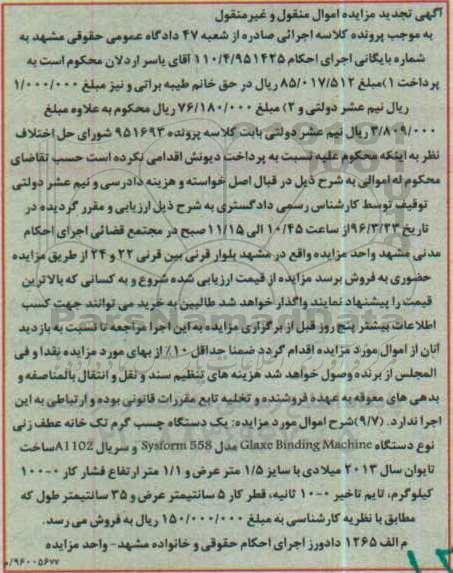 آگهی تجدید مزایده اموال منقول و غیرمنقول
به موجب پرونده کلاسه اجرائی صادره از شعبه ۴۷ دادگاه عمومی حقوقی مشهد به
شماره بایگانی اجرای احکام ۱۱۰/۴/۹۵۱۴۲۵ آقای یاسر اردلان محکوم است به
پرداخت ۱) مبلغ ۸۵/۰۱۷/۵۱۲ ریال در حق خانم طیبه براتی و نیز مبلغ ۱/۰۰۰/۰۰۰
ریال نیم عشر دولتی و ۲) مبلغ ۷۶/۱۸۰/۰۰۰ ریال محکوم به علاوه مبلغ
۳/۸۰۹/۰۰۰ ریال نیم عشر دولتی بابت کلاسه پرونده ۹۵۱۶۹۳ شورای حل اختلاف
نظر به اینکه محکوم علیه نسبت به پرداخت دیونش اقدامی نکرده است حسب تقاضای
محکوم له اموالی به شرح ذیل در قبال اصل خواسته و هزینه دادرسی و نیم عشر دولتی
توقیف توسط کارشناس رسمی دادگستری به شرح ذیل ارزیابی و مقرر گردیده در
تاریخ ۹۶/۳/۲۳ از ساعت ۱۰/۴۵ الی ۱۱/۱۵ صبح در مجتمع قضائی اجرای احکام
مدنی مشهد واحد مزایده واقع در مشهد بلوار قرنی بین قرنی ۲۲ و ۲۴ از طریق مزایده
حضوری به فروش برسد مزایده از قیمت ارزیابی شده شروع و به کسانی که بالاترین
قیمت را پیشنهاد نمایند واگذار خواهد شد طالبین به خرید می توانند جهت کسب
اطلاعات بیشتر پنج روز قبل از برگزاری مزایده به این اجرا مراجعه تا نسبت به بازدید
آنان از اموال مورد مزایده اقدام گردد ضمنا حداقل ۱۰٪ از بهای مورد مزایده نقدا و فی
المجلس از برنده وصول خواهد شد هزینه های تنظیم سند و نقل و انتقال بالمناصفه و
بدهی های معوقه به عهده فروشنده و تخلیه تابع مقررات قانونی بوده و ارتباطی به این
اجرا ندارد. (۹/۷) شرح اموال مورد مزایده: یک دستگاه چسب گرم تک خانه عطف زنی
نوع دستگاه Glaxe Binding Machine مدل Sysform 558 و سریال A1102 ساخت
تایوان سال ۲۰۱۳ میلادی با سایز ۱/۵ متر عرض و ۱/۱ متر ارتفاع فشار کار ۰-۱۰۰
کیلوگرم، تایم تاخیر ۰-۱۰ ثانیه، قطر کار ۵ سانتیمتر عرض و ۳۵ سانتیمتر طول که
مطابق با نظریه کارشناسی به مبلغ ۱۵۰/۰۰۰/۰۰۰ ریال به فروش می رسد.
م الف ۱۲۶۵ دادورز اجرای احکام حقوقی و خانواده مشهد- واحد مزایده
۹۶۰۰۵۶۷۷/م
ParsNamadData